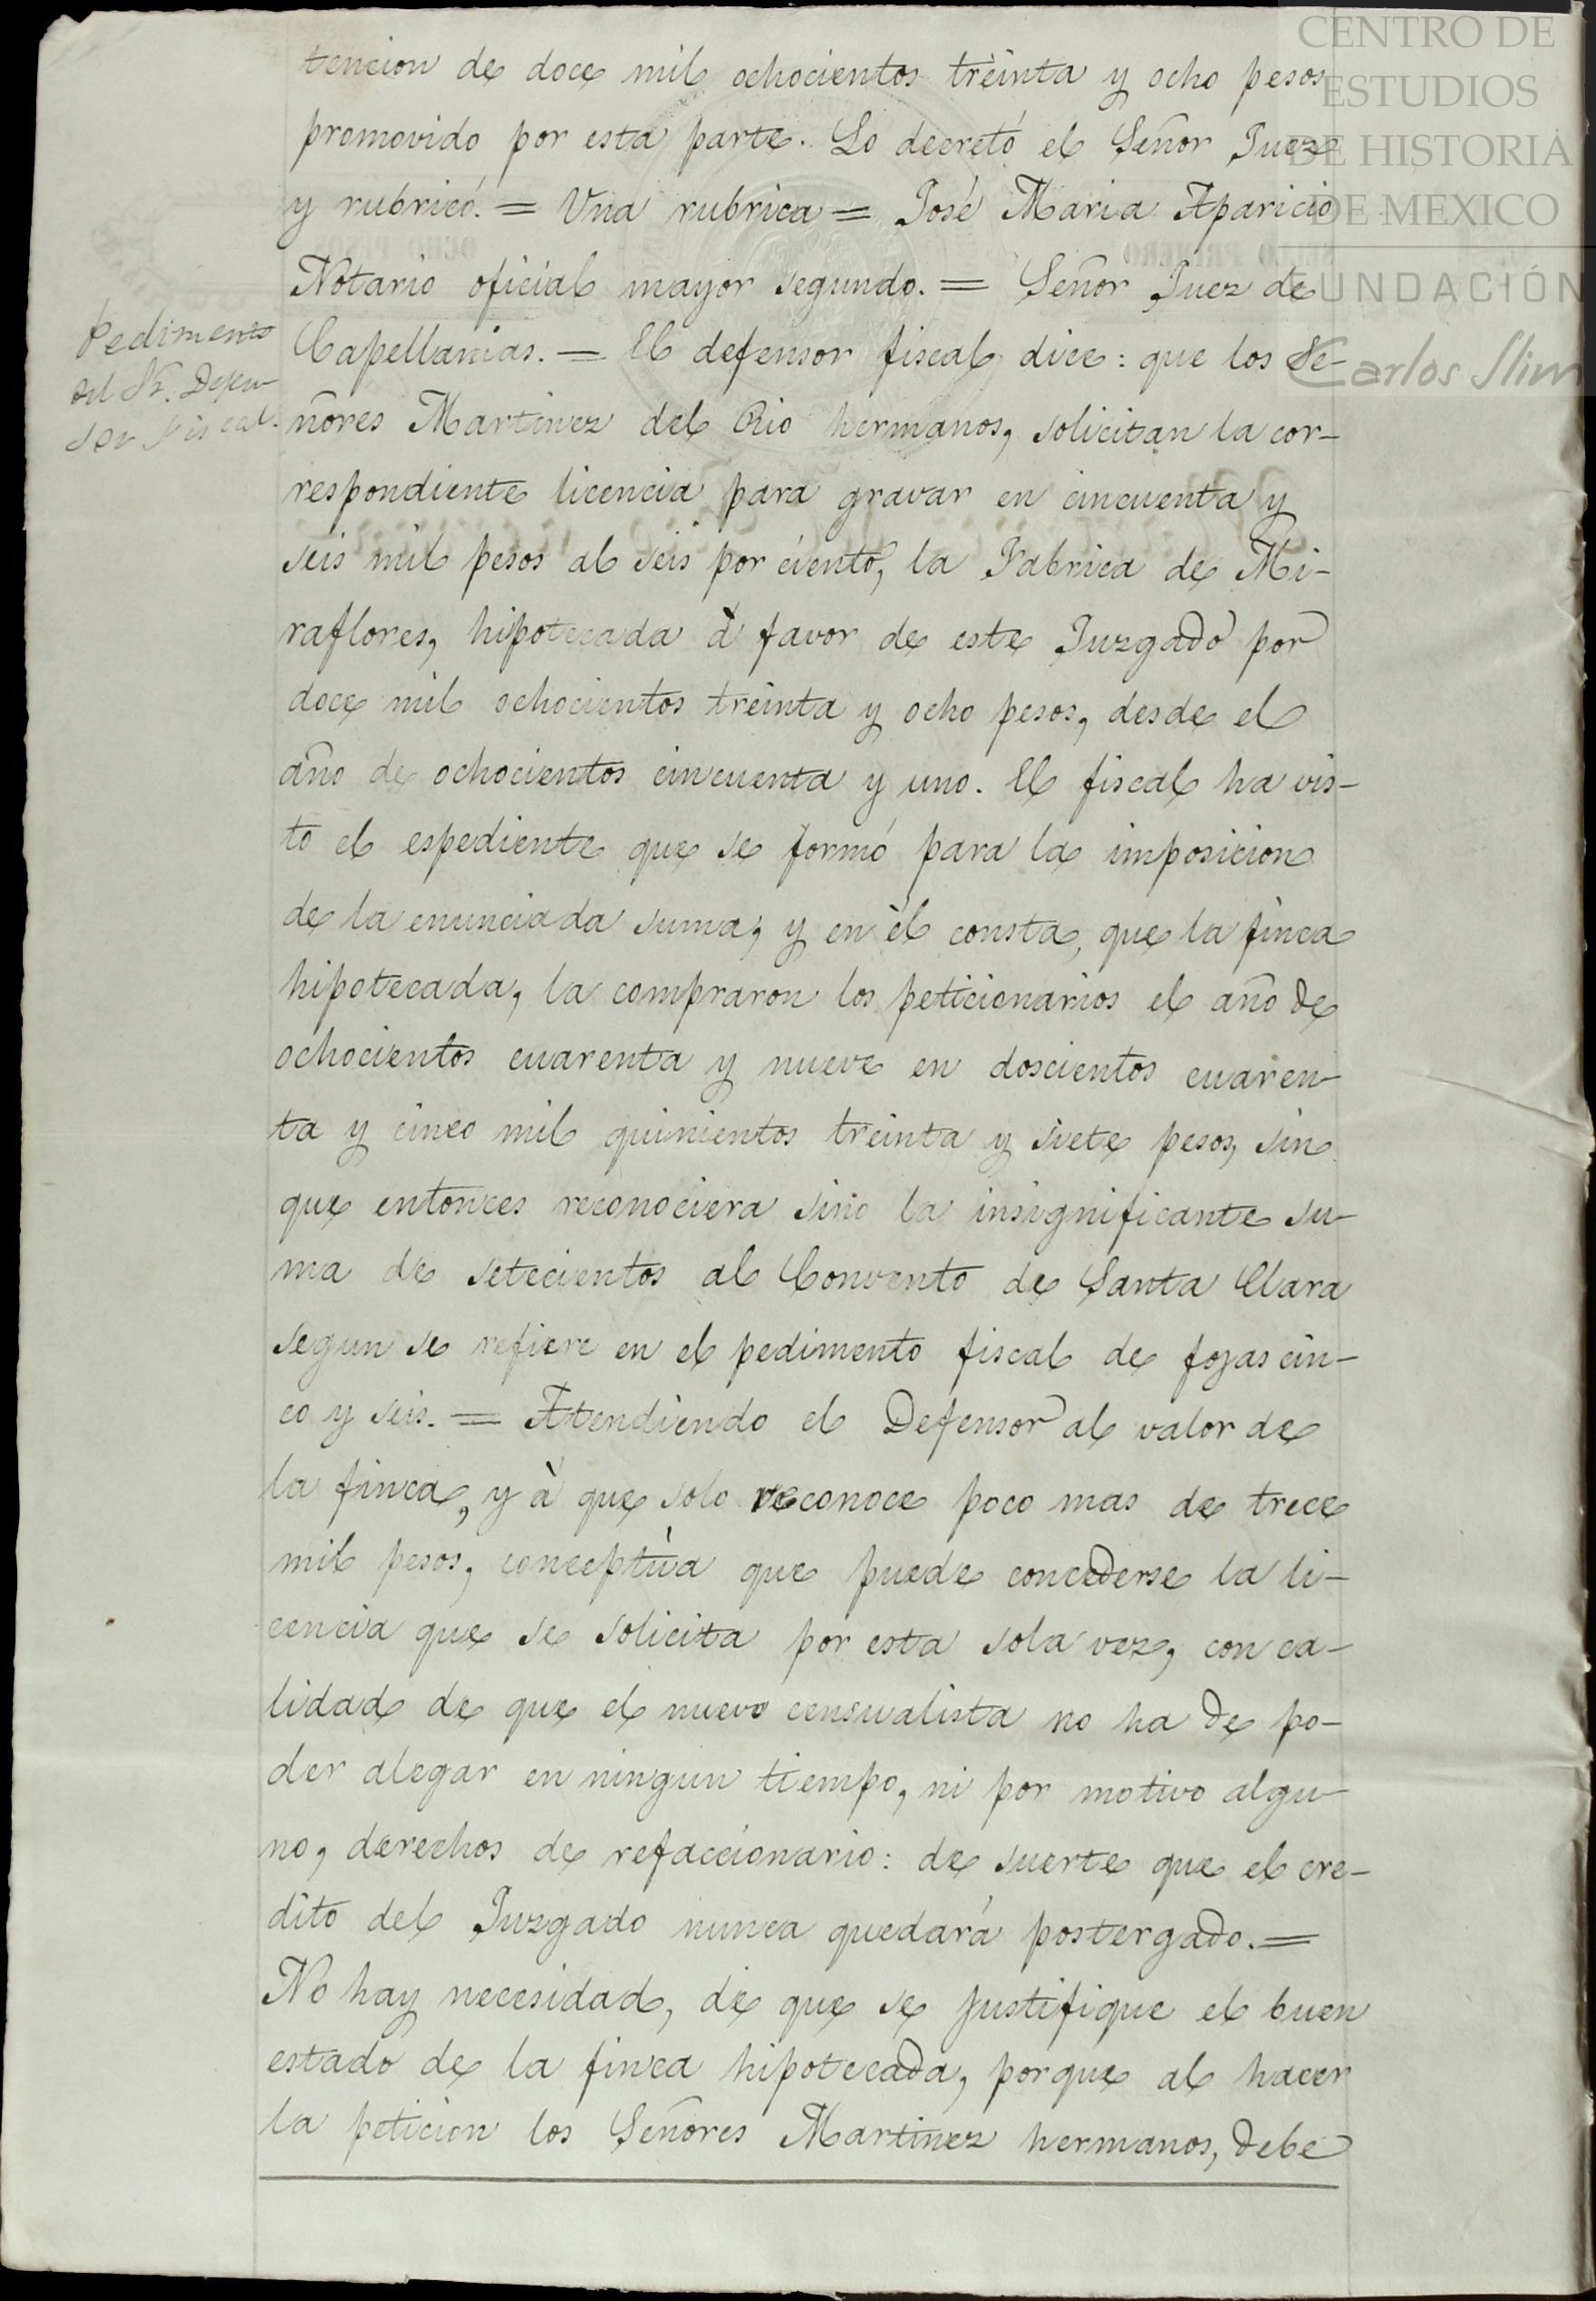 CENTRO DE
ESTUDIOS
DE HISTORIA
DE MEXICO
FUNDACIÓN
Carlos Slim
tencion de doce mil ochocientos treinta y ocho pesos
promovido por esta parte. Lo decretó el Señor Juez
y rubricó. = Una rubrica = José Maria Aparicio
Notario oficial mayor segundo. = Señor Juez de
Pedimento
del Sr. Defen-
sor Fiscal.
Capellanias. = El defensor fiscal dice: que los Se-
ñores Martinez del Rio hermanos, solicitan la cor-
respondiente licencia para gravar en cincuenta y
seis mil pesos al seis por ciento, la Fabrica de Mi-
raflores, hipotecada à favor de este Juzgado por
doce mil ochocientos treinta y ocho pesos, desde el
año de ochocientos cincuenta y uno. El fiscal ha vis-
to el espediente que se formó para la imposicion
de la enunciada suma, y en èl consta, que la finca
hipotecada, la compraron los peticionarios el año de
ochocientos cuarenta y nueve en doscientos cuaren-
ta y cinco mil quinientos treinta y siete pesos, sin
que entonces reconociera sino la insignificante su-
ma de setecientos al Convento de Santa Clara
segun se refiere en el pedimento fiscal de fojas cin-
co y seis. = Atendiendo el Defensor al valor de
la finca, y à que solo reconoce poco mas de trece
mil pesos, conceptùa que puede concederse la li-
cencia que se solicita por esta sola vez, con ca-
lidad de que el nuevo censualista no ha de po-
der alegar en ningun tiempo, ni por motivo algu-
no, derechos de refaccionario: de suerte que el cre-
dito del Juzgado nunca quedará postergado. =
No hay necesidad, de que se justifique el buen
estado de la finca hipotecada, porque al hacer
la peticion los Señores Martinez hermanos, debe